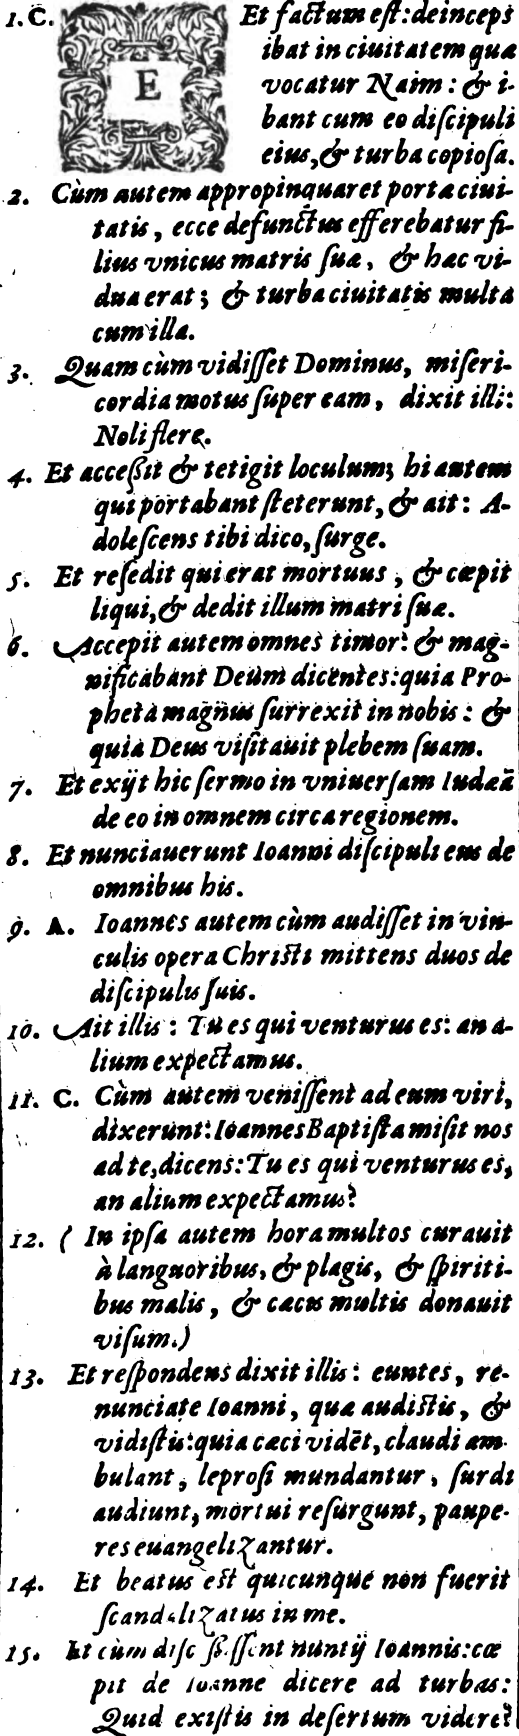 1. C. Et factum est: deinceps
ibat in ciuitatem quæ
vocatur Naim: & i-
bant cum eo discipuli
eius, & turba copiosa.
2. Cùm autem appropinquaret porta ciui-
tatis, ecce defunctus efferebatur fi-
lius vnicus matris suæ, & hæc vi-
dua erat; & turba ciuitatis multa
cum illa.
3. Quam cùm vidisset Dominus, miseri-
cordia motus super eam, dixit illi:
Noli flere.
4. Et accessit & tetigit loculum; hi autem
qui portabant steterunt, & ait: A-
dolescens tibi dico, surge.
5. Et resedit qui erat mortuus, & cœpit
liqui, & dedit illum matri suæ.
6. Accepit autem omnes timor: & mag-
nificabant Deum dicentes: quia Pro-
pheta magnus surrexit in nobis: &
quia Deus visitauit plebem suam.
7. Et exijt hic sermo in vniuersam Iudæã
de eo in omnem circa regionem.
8. Et nunciauerunt Ioanni discipuli eius de
omnibus his.
9. A. Ioannes autem cùm audisset in vin-
culis opera Christi mittens duos de
discipulis suis.
10. Ait illis: Tu es qui venturus es: an a-
lium expectamus.
11. C. Cùm autem venissent ad eum viri,
dixerunt: Ioannes Baptista misit nos
ad te, dicens: Tu es qui venturus es,
an alium expectamus?
12. ( In ipsa autem hora multos curauit
à languoribus, & plagis, & spiriti-
bus malis, & cæcis multis donauit
visum.)
13. Et respondens dixit illis: euntes, re-
nunciate Ioanni, quæ audistis, &
vidistis: quia cæci vidẽt, claudi am
bulant, leprosi mundantur, surdi
audiunt, mortui resurgunt, paupe-
res euangelizantur.
14. Et beatus est quicunque non fuerit
scandalizatus in me.
15. Et cùm discessissent nuntij Ioannis: cœ
pit de Ioanne dicere ad turbas:
Quid existis in desertum videre?